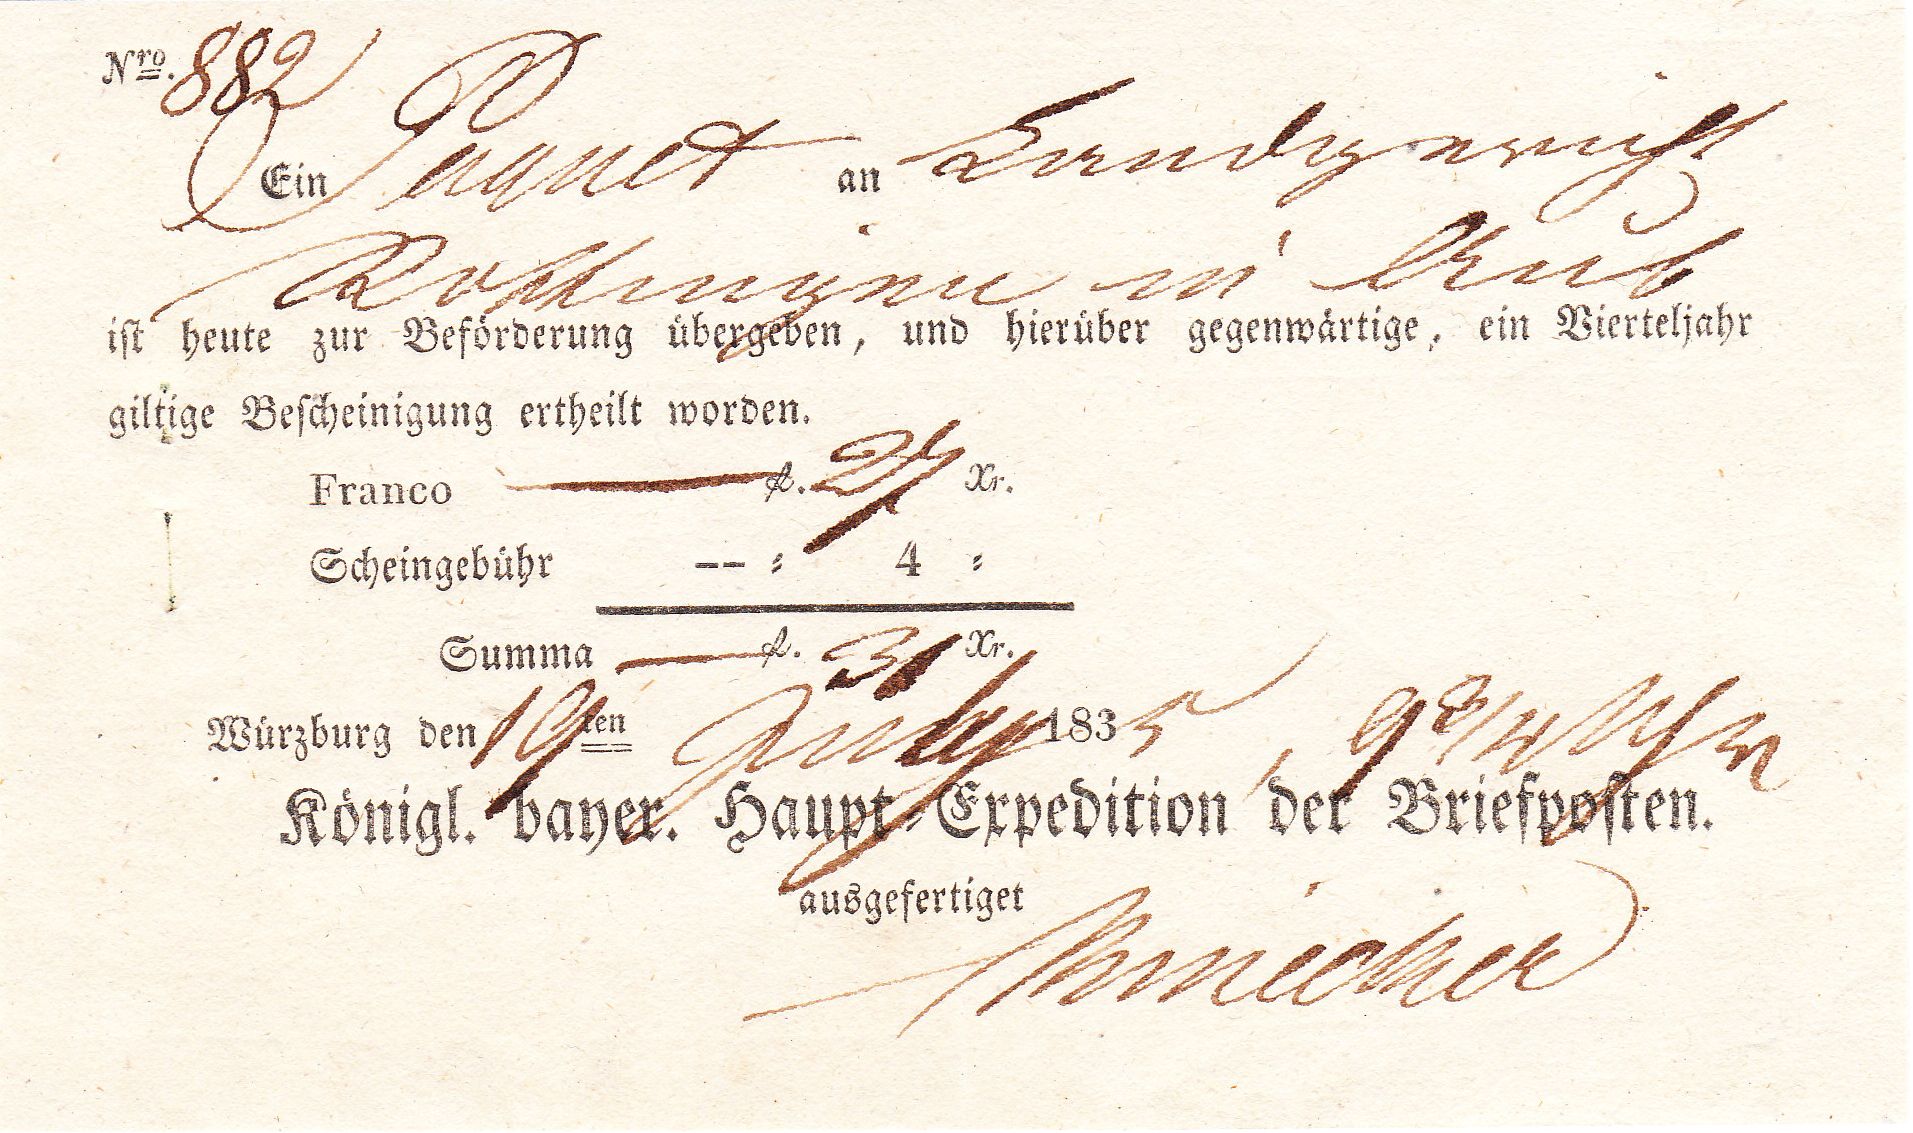 Nro. 882
Ein Paquet an Landgericht
Röttingen in Aub
iſt heute zur Beförderung übergeben, und hierüber gegenwärtige, ein Vierteljahr
giltige Beſcheinigung ertheilt worden.
Franco — fl. 27 Xr.
Scheingebühr -- = 4 =
Summa — fl. 31 Xr.
Würzburg den 19ten July 1835, 9 3/4 Uhr
Königl. bayer. Haupt-Expedition der Briefpoſten.
ausgefertiget